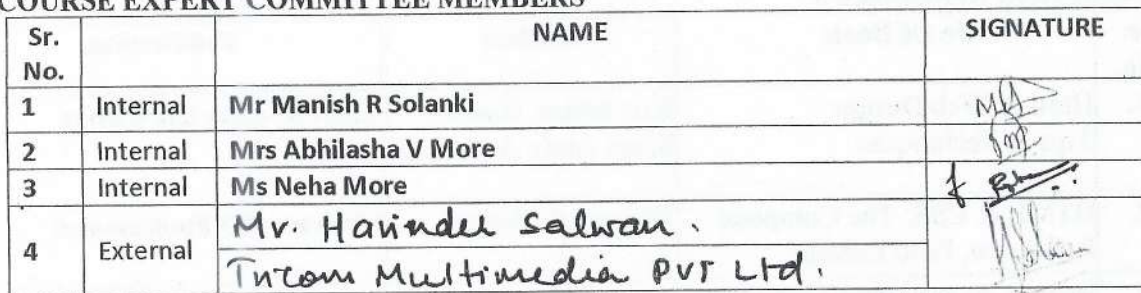 COURSE EXPERT COMMITTEE MEMBERS
Sr. No. NAME SIGNATURE
1 Internal Mr Manish R Solanki
2 Internal Mrs Abhilasha V More
3 Internal Ms Neha More
4 External Mr. Harinder Salwan.
Tricom Multimedia PVT Ltd.